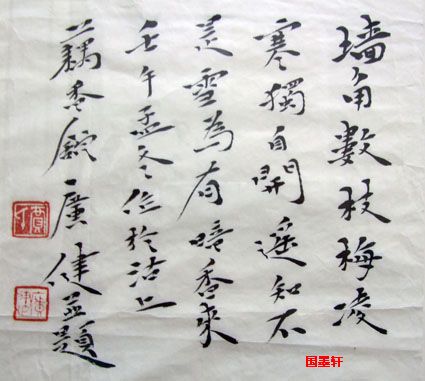 墙角數枝梅凌
寒獨自開遥知不
是雪為有暗香來
壬午孟冬位於沽上
藕香館廣健並題
国墨轩